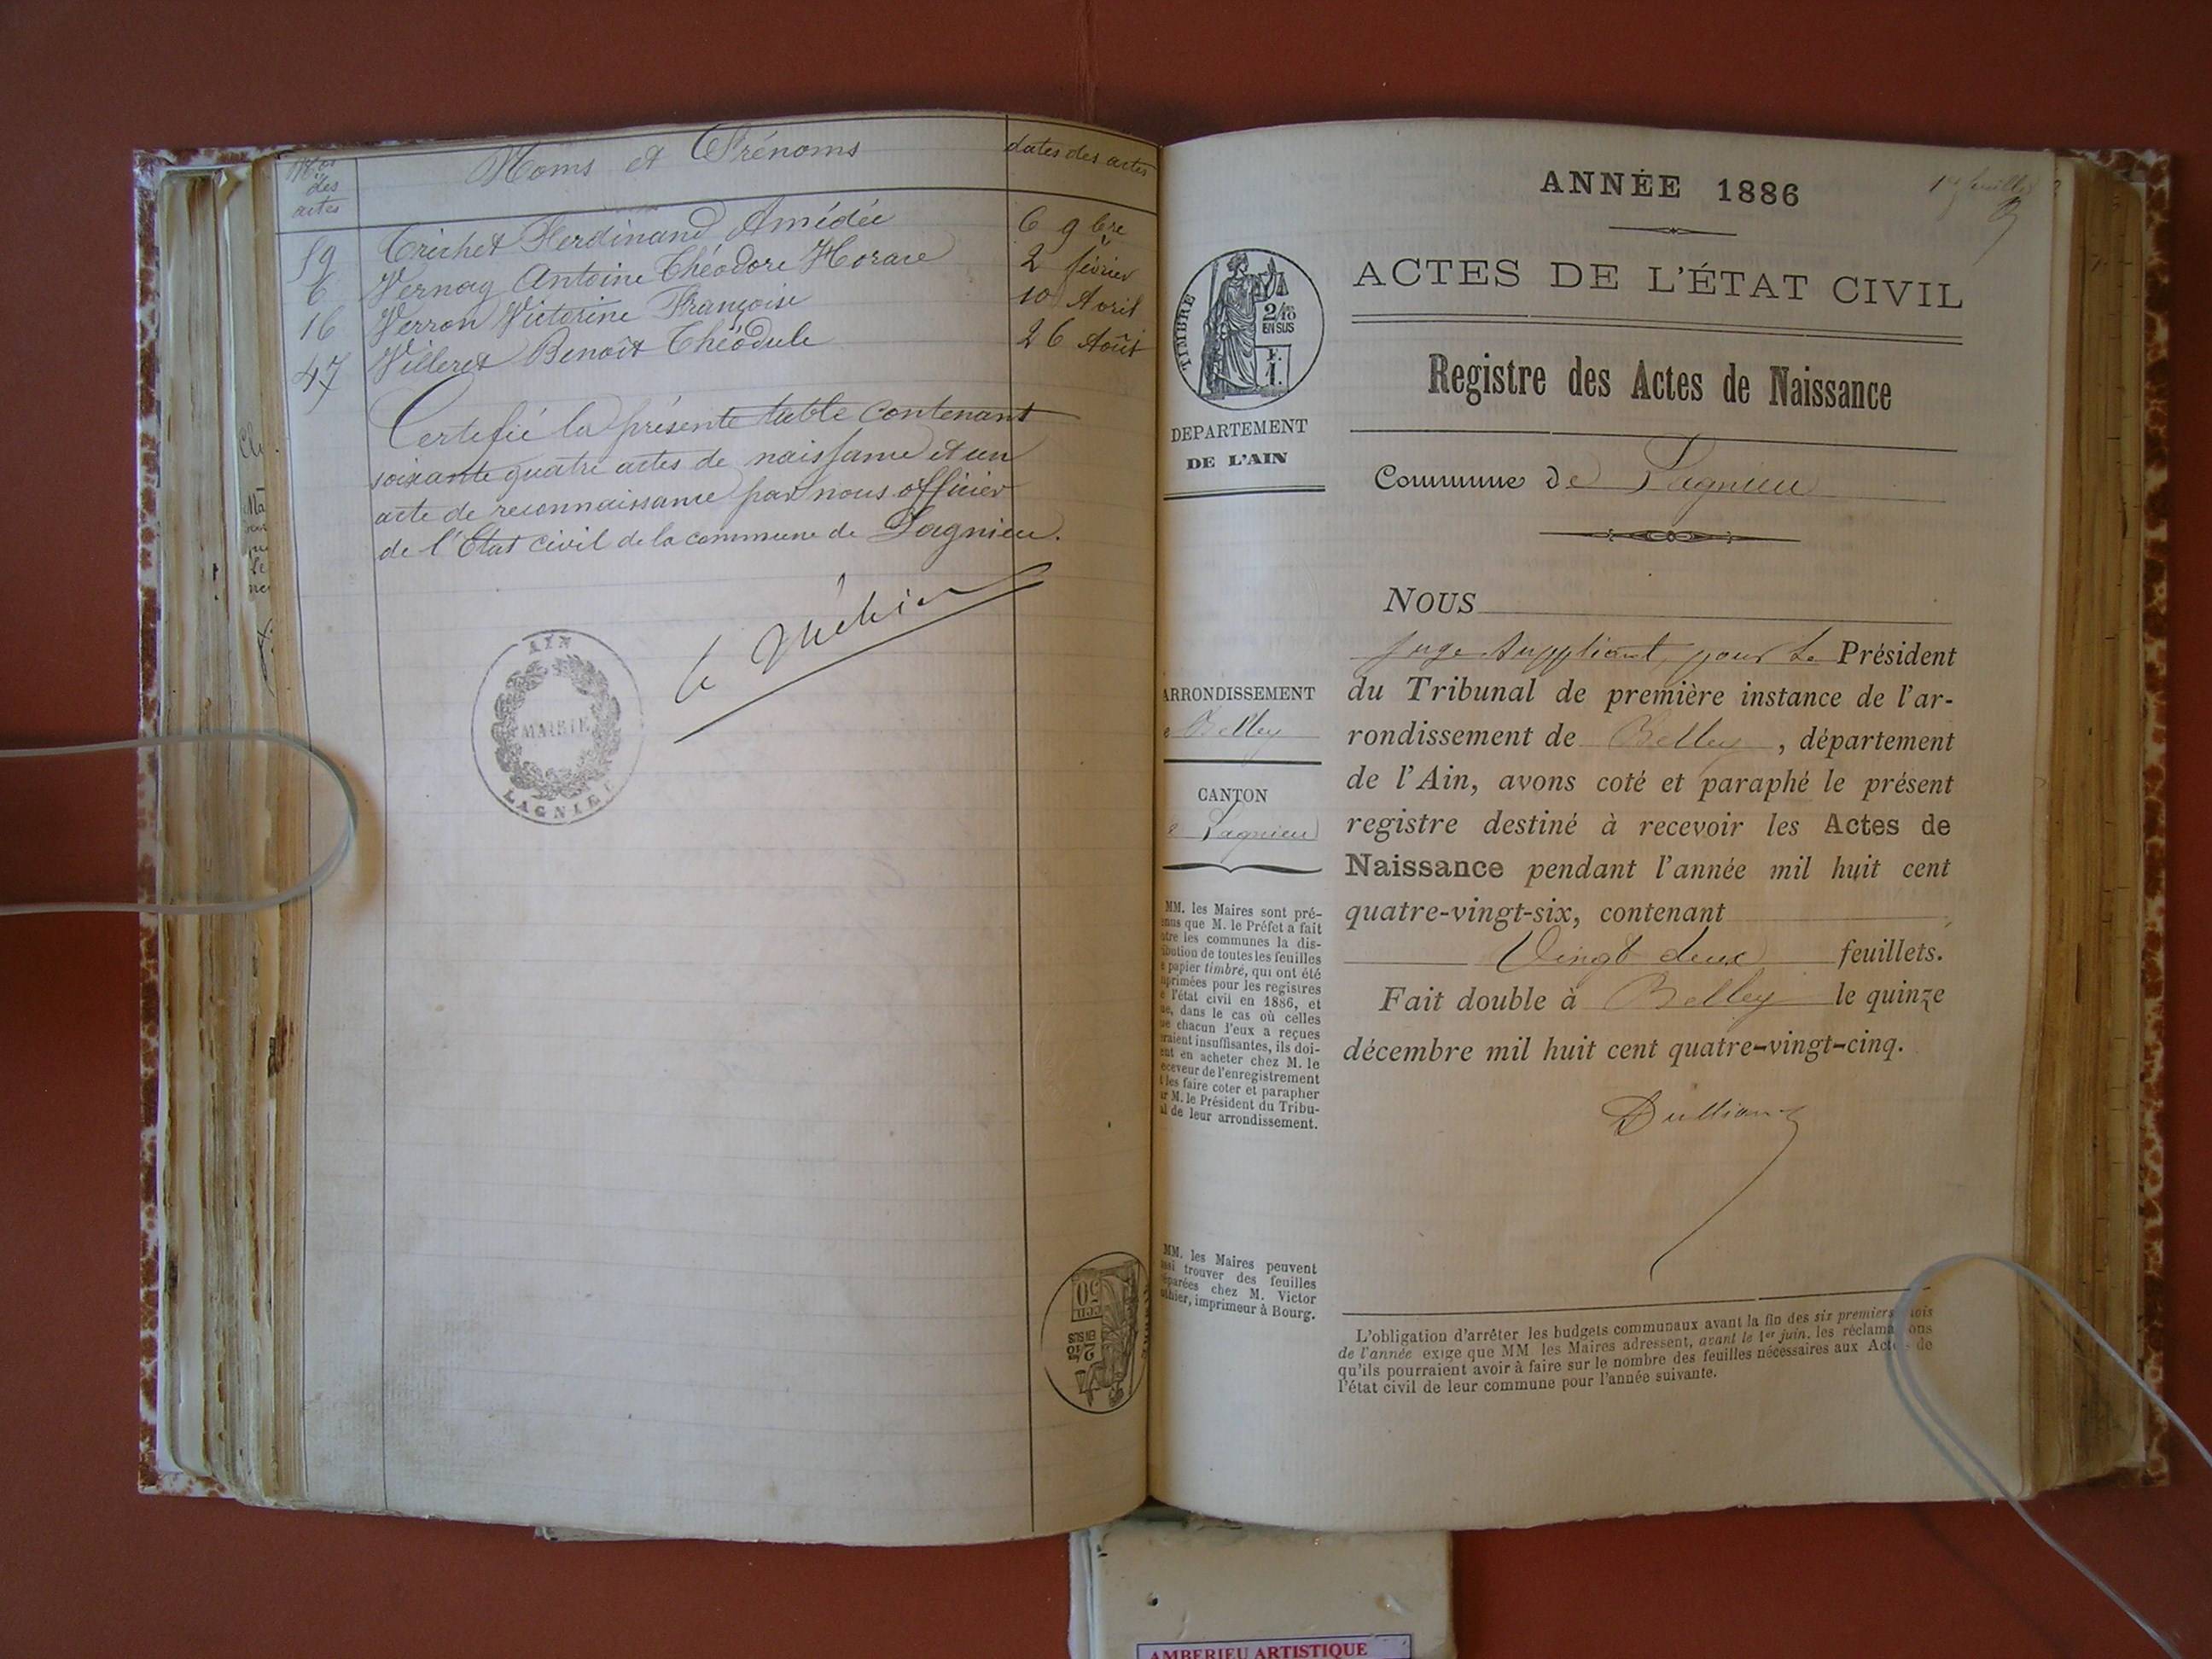 Nos des actes
Noms et Prénoms
dates des actes
59 Trichet Ferdinand Amédée 6 9bre
6 Vernay Antoine Théodore Horace 2 février
16 Verron Victorine Françoise 10 Avril
47 Villeret Benoît Théodule 26 Août
Certifié la présente table contenant
soixante quatre actes de naissance et un
acte de reconnaissance par nous officier
de l'Etat civil de la commune de Lagnieu.
AIN
MAIRIE
LAGNIEU
50
2/10
EN SUS
1er feuillet
ANNÉE 1886
ACTES DE L'ÉTAT CIVIL
Registre des Actes de Naissance
Commune de Lagnieu
TIMBRE
2/10
EN SUS
DEPARTEMENT
DE L'AIN
ARRONDISSEMENT
e Belley
CANTON
e Lagnieu
MM. les Maires sont pré-
enus que M. le Préfet a fait
ntre les communes la dis-
ribution de toutes les feuilles
e papier timbré, qui ont été
mprimées pour les registres
e l'état civil en 1886, et
ue, dans le cas où celles
ue chacun d'eux a reçues
eraient insuffisantes, ils doi-
ent en acheter chez M. le
eceveur de l'enregistrement
t les faire coter et parapher
ar M. le Président du Tribu-
al de leur arrondissement.
MM. les Maires peuvent
ussi trouver des feuilles
éparées chez M. Victor
uthier, imprimeur à Bourg.
NOUS
Juge suppléant, pour le Président
du Tribunal de première instance de l'ar-
rondissement de Belley, département
de l'Ain, avons coté et paraphé le présent
registre destiné à recevoir les Actes de
Naissance pendant l'année mil huit cent
quatre-vingt-six, contenant
Vingt deux feuillets.
Fait double à Belley le quinze
décembre mil huit cent quatre-vingt-cinq.
L'obligation d'arrêter les budgets communaux avant la fin des six premiers mois
de l'année exige que MM les Maires adressent, avant le 1er juin, les réclamations
qu'ils pourraient avoir à faire sur le nombre des feuilles nécessaires aux Actes de
l'état civil de leur commune pour l'année suivante.
AMBERIEU ARTISTIQUE